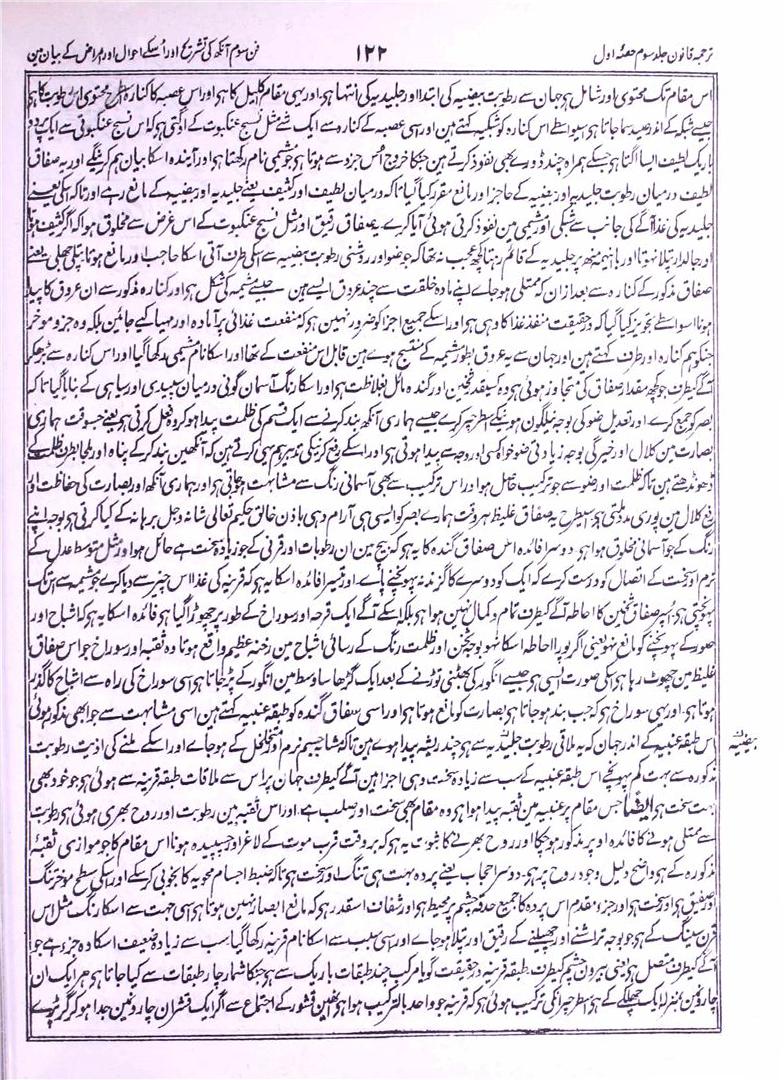 ترجمہ قانون جلد سوم حصۂ اول
۱۲۲
فن سوم آنکھ کی تشریح اور اُسکے احوال اور امراض کے بیان مین
اس مقام تک محتوی اور شامل ہو جہان سے رطوبت بیضیہ کی ابتدا اور جلیدیہ کی انتہا ہو اور یہی مقام اکلیل کا ہو اور اس عصبہ کا کنارہ اسطرح محتوی اس رطوبت کا ہو
جیسے شبکہ کے اندر صید سما جاتا ہو سیواسطے اس کنارہ کو شبکیہ کہتے ہین اور اسی عصبہ کے کنارہ سے ایک شے مثل نسج عنکبوت کے اُگتی ہو کہ اس نسج عنکبوتی سے ایک پردہ
باریک لطیف ایسا اگتا ہو جسکے ہمراہ چند ڈورے بھی نفوذ کرتے ہین جنکا خروج اُس جزو سے ہوتا ہو جو مشیمی نام رکھتا ہو اور آیندہ اسکا بیان ہم کرینگے اور یہ صفاق
لطیف درمیان رطوبت جلیدیہ اور بیضیہ کے حاجز اور مانع مقرر کیا گیا تاکہ درمیان لطیف اور کثیف یعنے جلیدیہ اور بیضیہ کے مانع رہے اور تاکہ اسکی یعنے
جلیدیہ کی غذا آگے کی جانب سے شبکی اور مشیمی مین نفوذ کرتی ہوئی آیا کرے یہ صفاق رقیق اور مثل نسج عنکبوت کے اس غرض سے مخلوق ہوا کہ اگر کثیف ہوتا
اور جالدار پتلا نہوتا اور با اینہمہ منھ پر جلیدیہ کے قائم رہتا کچھ عجیب نہ تھا کہ جو ضو اور روشنی رطوبت بیضیہ سے اسکی طرف آتی اسکا حاجب اور مانع ہوتا پتلی جھلی یعنے
صفاق مذکور کے کنارہ سے بعد ازان کہ ممتلی ہو جاے اپنے مادہ خلقت سے چند عروق ایسے ہین جیسے مشیمہ کی شکل ہو اور کنارہ مذکور سے ان عروق کا پیدا
ہونا اسواسطے تجویز کیا گیا کہ درحقیقت منفذ غذا کا وہی ہو اور اسکے جمیع اجزا کو ضرور نہین ہو کہ منفعت غذائی پر آمادہ اور مہیا کیے جائین بلکہ وہ جزو موخر
جنکو ہم کنارہ اور طرف کہتے ہین اور جہان سے یہ عروق بطور مشیمہ کے منتسج ہوے ہین قابل اس منفعت کے تھا اور اسکا نام مشیمی رکھا گیا اور اس کنارہ سے بڑھکر
آگے کیطرف جو کچھ مقدار صفاق کی متجاوز ہوئی ہو وہ کسیقدر ثخین اور گندہ مائل بغلاظت ہو اور اسکا رنگ آسمان گونی درمیان سپیدی اور سیاہی کے بنایا گیا تاکہ
بصر کو جمع کرے اور تعدیل ضو کی بوجہ نیلگون ہونیکے اسطرحپر کرے جیسے ہماری آنکھ بند کرنے سے ایک قسم کی ظلمت پیدا ہو کر وہ فعل کرتی ہو یعنے جسوقت ہماری
بصارت مین کلال اور خیرگی بوجہ زیادتی ضو خواہ کسی اور وجہ سے پیدا ہوتی ہو اور اسکے رفع کرنیکی تدبیر ہم یہی کرتے ہین کہ آنکھین بند کر کے پناہ اور ملجا بطرف ظلمت کے
ڈھونڈھتے ہین تاکہ ظلمت اور ضو سے جو ترکیب حاصل ہو اور اس ترکیب سے بھی آسمانی رنگ سے مشابہت ہو جاتی ہو اور ہماری آنکھ اور بصارت کی حفاظت اور
رفع کلال مین پوری مدد ملتی ہو اسیطرح یہ صفاق غلیظ ہر وقت ہمارے بصر کو ایسی ہی آرام دہی باذن خالق حکیم تعالی شانہ و جل برہانہ کے کیا کرتی ہو بوجہ اپنے
رنگ کے جو آسمانی مخلوق ہوا ہو۔ دوسرا فائدہ اس صفاق گندہ کا یہ ہو کہ بیچ مین ان رطوبات اور قرنی کے جو زیادہ سخت ہے حائل ہو اور مثل متوسط عدل کے
نرم اور سخت کے اتصال کو درست کرے کہ ایک کو دوسرے کا گزند نہ پہونچنے پاے۔ اور تیسرا فائدہ اسکا یہ ہو کہ قرنیہ کی غذا اس چیز سے دیا کرے جو مشیمہ سے اس تک
پہونچتی ہو پھر صفاق ثخین کا احاطہ آگے کیطرف تمام و کمال نہین ہوا ہو بلکہ اسکے آگے ایک فرجہ اور سوراخ کے طور پر چھوڑا گیا ہو فائدہ اسکا یہ ہو کہ اشباح اور
صور کے پہونچنے کو مانع نہو یعنی اگر پورا احاطہ اسکا ہو بوجہ ثخن اور ظلمت رنگ کے رسائی اشباح مین رخنہ عظیم واقع ہوتا وہ ثقبہ اور سوراخ جو اس صفاق
غلیظ مین چھوٹ رہا ہو اسکی صورت ایسی ہو جیسے انگور کی بھٹنی توڑنے کے بعد ایک گڑھا سا وسط مین انگور کے پڑجاتا ہو اسی سوراخ کی راہ سے اشباح کا گذر
ہوتا ہو۔ اور یہی سوراخ ہو کہ جب بند ہو جاتا ہو بصارت کو مانع ہوتا ہو اور اسی صفاق گندہ کو طبقہ عنبیہ کہتے ہین اسی مشابہت سے جو ابھی مذکور ہوئی
اس طبقہ عنبیہ کے اندر جہان کہ یہ ملاقی رطوبت جلیدیہ سے ہو چند ریشہ پیدا ہوے ہین تاکہ مشابہ جسم نرم اور متخلخل کے ہو جاے اور اسکے ملنے کی اذیت رطوبت
بیضیہ
مذکورہ سے بہت کم پہونچے اس طبقہ عنبیہ کے سب سے زیادہ سخت وہی اجزا ہین آگے کیطرف جہان پر اس سے ملاقات طبقہ قرنیہ سے ہوئی ہو جو خود بھی
بہت سخت ہو ایضاً جس مقام پر عنبیہ مین ثقبہ پیدا ہوا ہو وہ مقام بھی سخت اور صلب ہے۔ اور اس ثقبہ مین رطوبت اور روح بھری ہوئی ہو رطوبت
سے ممتلی ہونے کا فائدہ اوپر مذکور ہو چکا اور روح بھرنے کا ثبوت یہ ہو کہ بروقت قرب موت کے لاغر اور چسپیدہ ہونا اس مقام کا جو موازی ثقبۂ
مذکورہ کے ہو واضح دلیل وجود روح پر ہو۔ دوسرا حجاب یعنے پردہ بہت ہی تنگ اور سخت ہو تاکہ ضبط اجسام محویہ کا بخوبی کرسکے اور اسکی سطح موخر تنگ
اور صفیق ہو اور سخت ہو اور جزء مقدم اس پردہ کا جمیع حدقہ چشم پر محیط ہو اور شفاف اسقدر ہو کہ مانع ابصار نہین ہوتا ہو اسی جہت سے اسکا رنگ مثل اس
قرن سینگ کے ہو جو بوجہ تراشنے اور چھیلنے کے رقیق اور پتلا ہو جاے اور اسی سبب سے اسکا نام قرنیہ رکھا گیا سب سے زیادہ ضعیف اسکا وہ جزء ہے جو
آگے کیطرف متصل ہو یعنی بیرون چشم کیطرف۔ طبقہ قرنیہ درحقیقت گویا مرکب چند طبقات باریک سے ہو جنکا شمار چار طبقات سے کیا جاتا ہو ہر ایک ان
چارونمین بمنزلہ ایک چھلکے کے ہو اسطرحپر انکی ترکیب ہوئی ہو کہ قرنیہ جو واحد بالترکیب ہوا ہو انھین قشور کے اجتماع سے اگر ایک قشر ان چارونمین جدا ہو کر گر پڑے